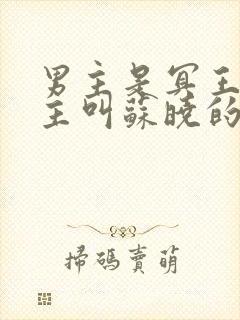 男主是冥王
主叫蘇曉的
掃碼賣萌